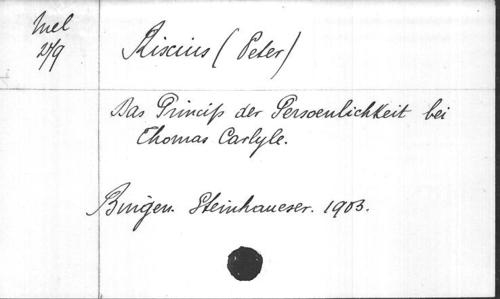 Mel
24/9
Rixius (Peter)
Das Princip der Persoenlichkeit bei
Thomas Carlyle.
Bingen. Steinhaueser. 1903.